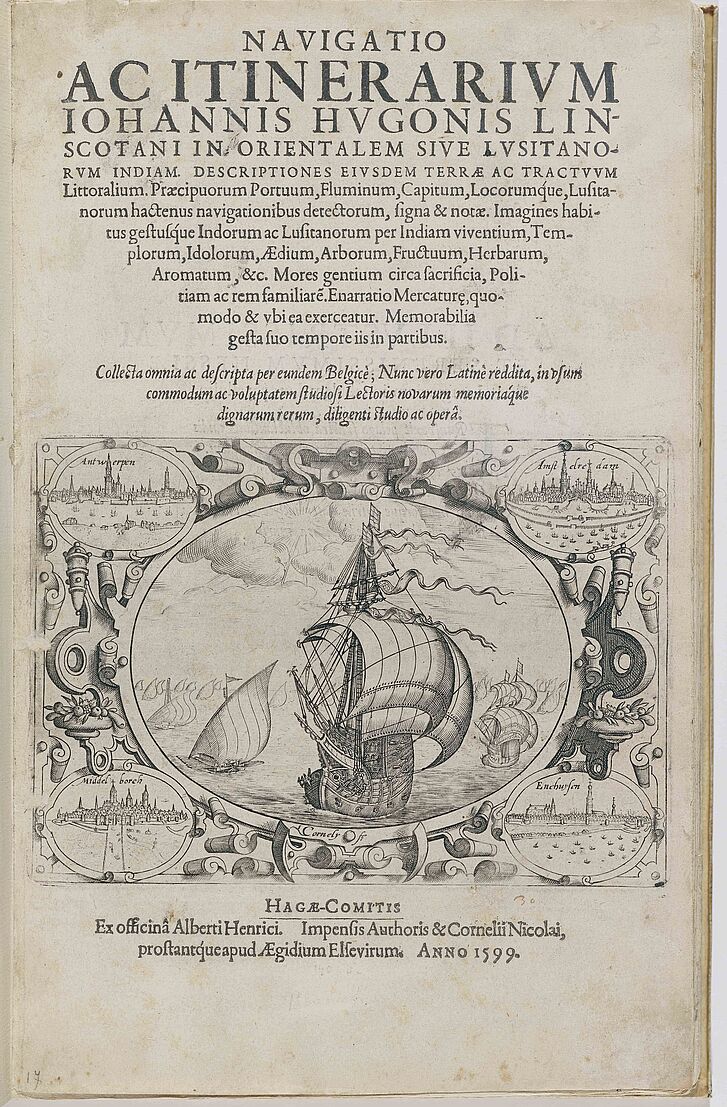 NAVIGATIO
AC ITINERARIVM
IOHANNIS HVGONIS LIN-
SCOTANI IN ORIENTALEM SIVE LVSITANO-
RVM INDIAM. DESCRIPTIONES EIVSDEM TERRÆ AC TRACTVVM
Littoralium. Præcipuorum Portuum, Fluminum, Capitum, Locorumque, Lusita-
norum hactenus navigationibus detectorum, signa & notæ. Imagines habi-
tus gestusque Indorum ac Lusitanorum per Indiam viventium, Tem-
plorum, Idolorum, Ædium, Arborum, Fructuum, Herbarum,
Aromatum, &c. Mores gentium circa sacrificia, Poli-
tiam ac rem familiarē. Enarratio Mercaturę, quo-
modo & vbi ea exerceatur. Memorabilia
gesta suo tempore iis in partibus.
Collecta omnia ac descripta per eundem Belgicè; Nunc vero Latinè reddita, in vsum
commodum ac voluptatem studiosi Lectoris novarum memoriaque
dignarum rerum, diligenti studio ac operâ.
Antwerpen
Amstelredam
Middelborch
Enchuysen
HAGÆ-COMITIS
Ex officinâ Alberti Henrici. Impensis Authoris & Cornelii Nicolai,
prostantque apud Ægidium Elsevirum. ANNO 1599.
17